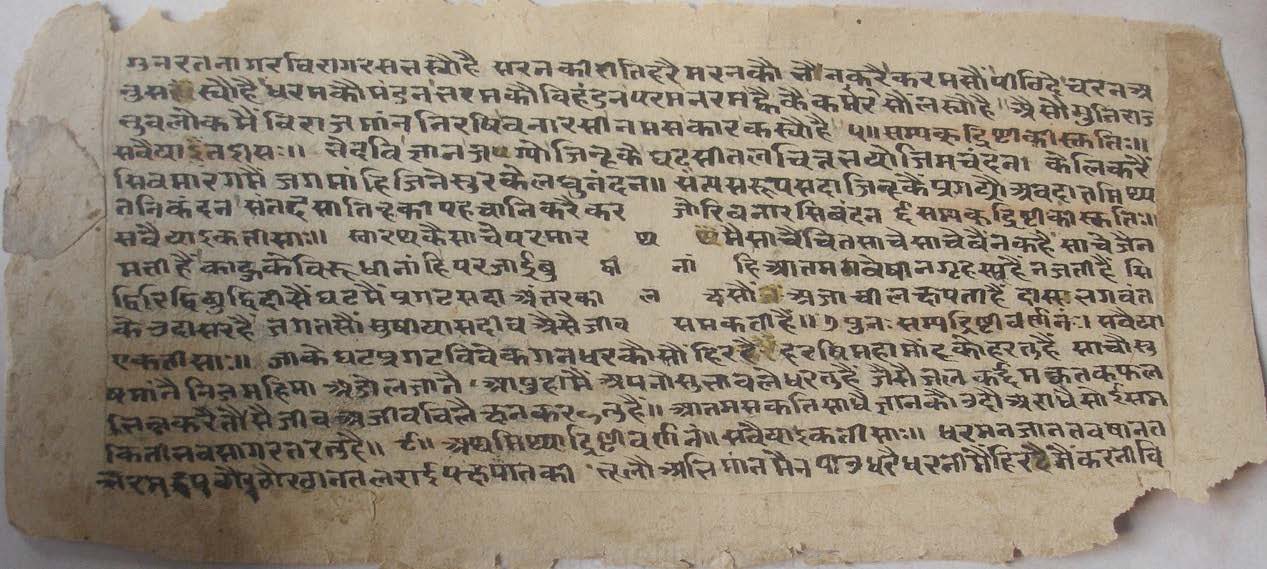 गुनरतनागर विरागरस भस्यौहै सरनकीरीतिहरै मरनकौ भौनकरै करमसौं पीठिदे चरनअ
नुसस्यौहै धरमकौमंडन भरमकौविहंडन परमनरमह्वैकै करमसौंलस्यौहै। अैसौमुनिराज
भुवलोकमैं विराजमांन निरषि बनारसी नमसकारकस्यौहै ५॥ सम्यकद्रिष्टीकीस्तुतिः॥
सवैयाइतेईसा॥ भेदविज्ञानजग्यौजिन्हकै घटसीतलचित्तभयौजिमचंदन। केलिकरैं
सिवमारगमैं जगमांहिजिनेसुरकेलघुनंदन॥ सत्यसरूपसदाजिन्हकैं प्रगट्यौअवदातमिथ्या
तनिकंदन संतदसातिन्हकी पहचानिकरैकर जोरिबनारसिबंदन ६ सम्यकद्रिष्टीकीस्तुतिः॥
सवैयाइकतीसाः॥ स्वारथकैसाचेपरमार थ थमैसाचेचितसाचेसाचेबैनकहैं साचेजैन
मतीहैं काहुकेविरुधीनांहिपरजाईबु धी नां हिआतमगवेषीनगृहस्तहैंनजतीहैं सि
द्धिरिद्धिब्रुद्धिदीसैंघटमैं प्रगटसदा अंतरकी ल छसौं अजाचीलछपतीहैं दासभगवंत
केउदासरहैं जगतसौं सुषीयासदीवअैसेजीव समकतीहैं॥ ७ पुनः सम्यद्रिष्टीवर्ननं। सवैया
एकतीसाः॥ जाकेघटप्रगटविवेकगनधरकौसौ हिरदै हरषिमहामोंहकौंहरतुहै साचौसु
षमांनैनिजमहिमा अडोलजानै आपुहीमैं अपनौसुभावलेधरतुहै जैसैंजलकर्दमकुतकफल
भिंनकरैतैसैंजीवअजीवविलेछनकरतुहै॥ आतमसकतिसाधैज्ञानकौउदौअराधैसोईसम
कितीभवसागरतरतुहै॥ ८॥ अथमिथ्याद्रिष्टीवर्ननं॥ सवैयाइकतीसाः॥ धरमनजानतबषानत
भरमरूपठौरठौरठानतलराईपछपातकी भूलौअभिमांनमैंनपाउधरैधरनीमैंहिरदैमैंकरनीवि